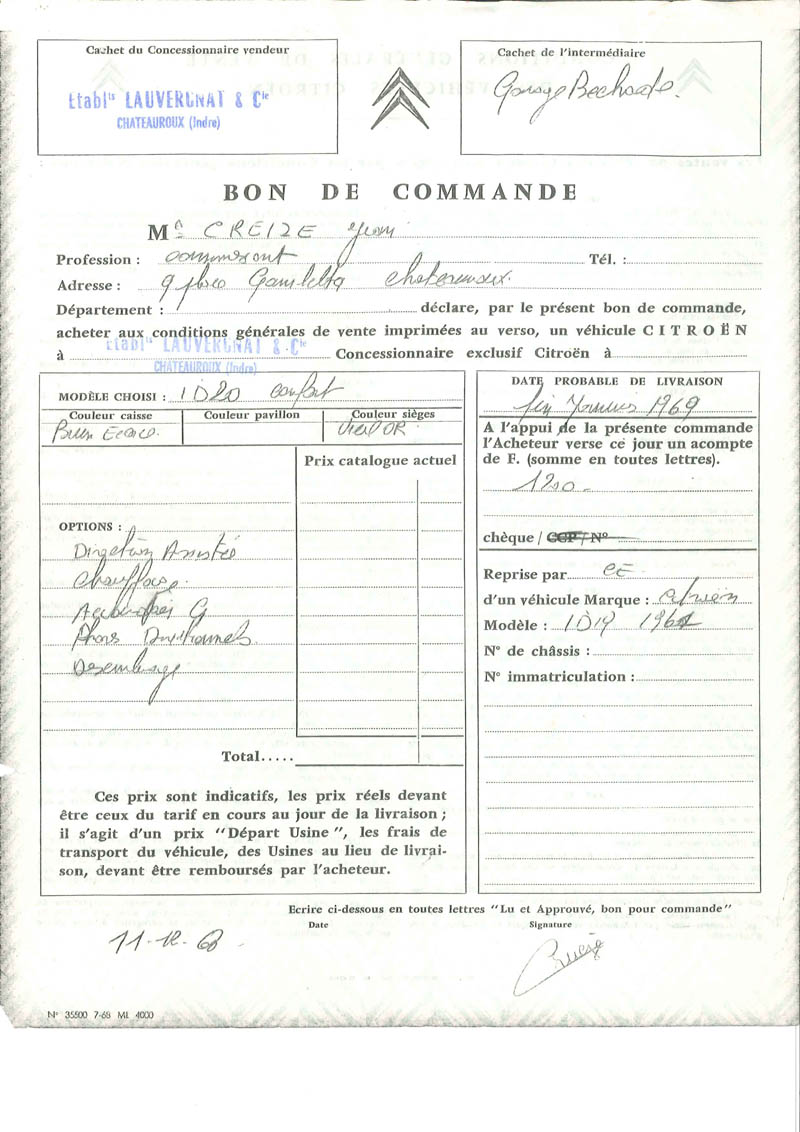 Cachet du Concessionnaire vendeur
Etablts LAUVERGNAT & Cie
CHATEAUROUX (Indre)
Cachet de l'intermédiaire
Garage
BON DE COMMANDE
Mr CREIZE Jean
Profession : commercant Tél. :
Adresse : 9 place Gambetta Chateauroux
Département : déclare, par le présent bon de commande,
acheter aux conditions générales de vente imprimées au verso, un véhicule CITROËN
à Etablts LAUVERGNAT & Cie Concessionnaire exclusif Citroën à
CHATEAUROUX (Indre)
MODÈLE CHOISI : ID20 confort
Couleur caisse Couleur pavillon Couleur sièges
Vieil OR
Prix catalogue actuel
OPTIONS :
Direction Assistée
Chauffage
G
Phares
Desembuage
Total.....
Ces prix sont indicatifs, les prix réels devant
être ceux du tarif en cours au jour de la livraison ;
il s'agit d'un prix "Départ Usine", les frais de
transport du véhicule, des Usines au lieu de livrai-
son, devant être remboursés par l'acheteur.
DATE PROBABLE DE LIVRAISON
fin Janvier 1969
A l'appui de la présente commande
l'Acheteur verse ce jour un acompte
de F. (somme en toutes lettres).
1200-
chèque / CCP / N°
Reprise par
d'un véhicule Marque : Citroën
Modèle : ID19 1961
N° de châssis :
N° immatriculation :
Ecrire ci-dessous en toutes lettres "Lu et Approuvé, bon pour commande"
Date Signature
11-12-68
N° 35500 7-68 ML 4000